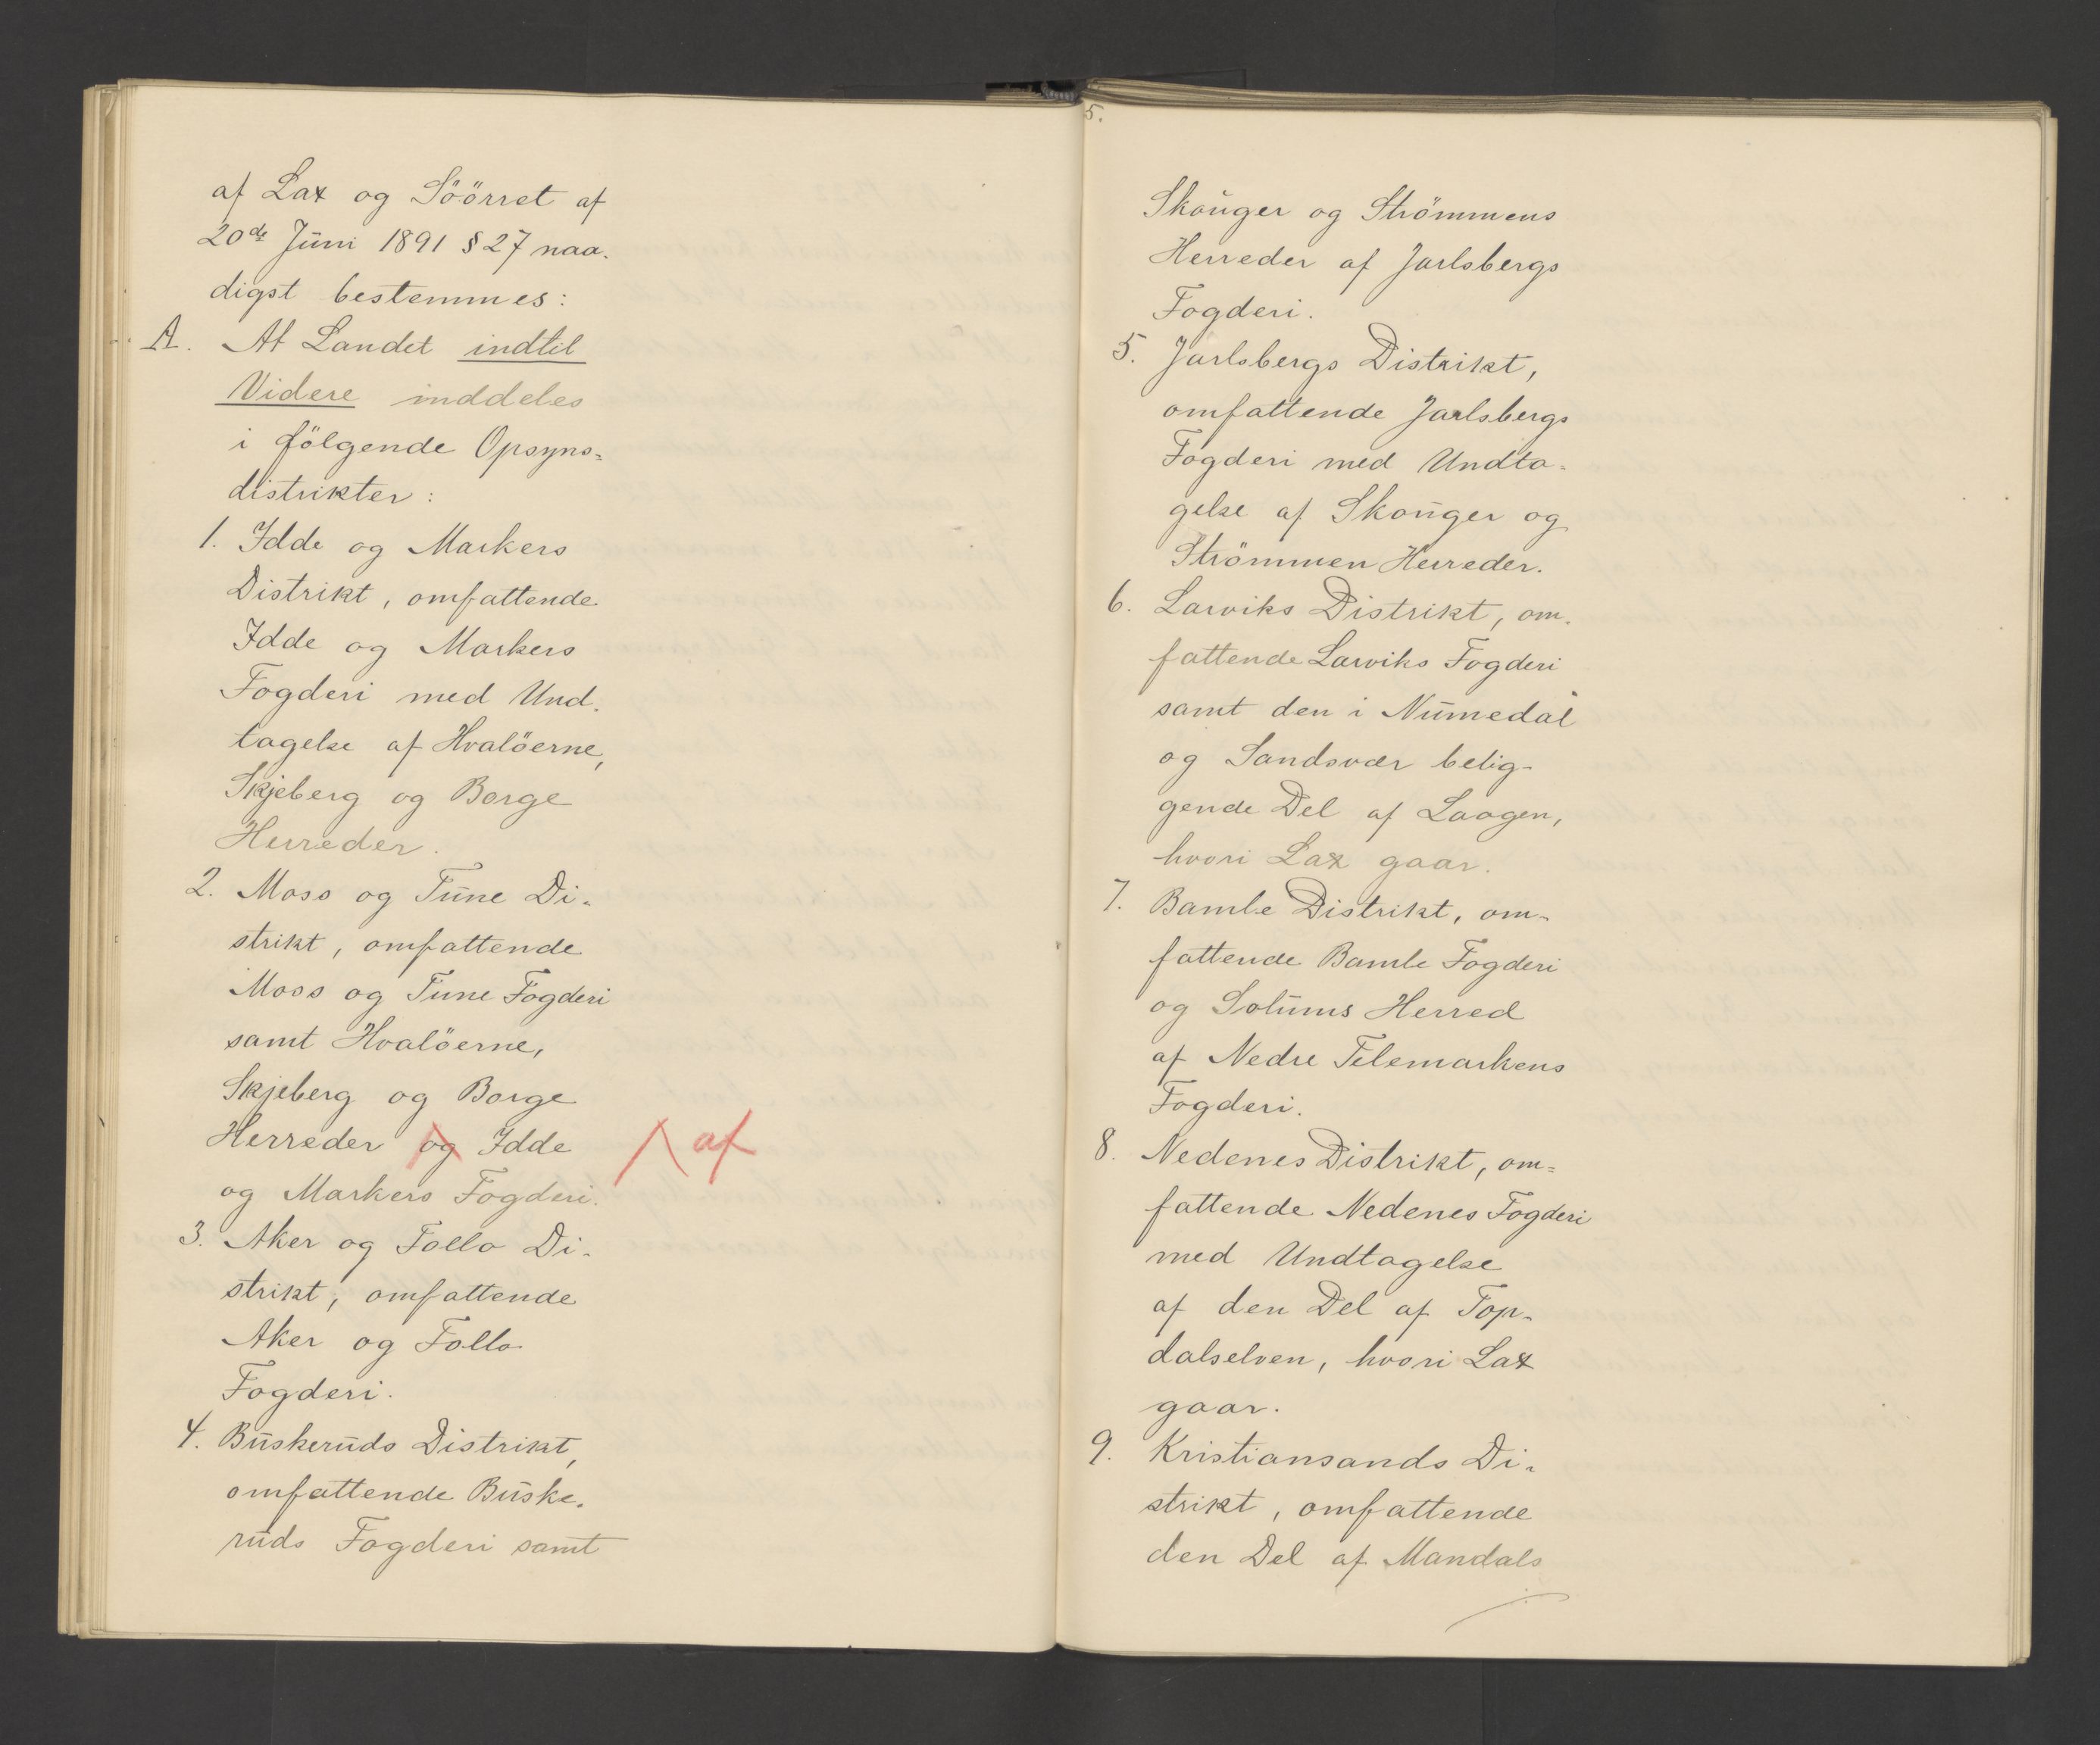 af Lax og Söörret af
20de Juni 1891 § 27 naa-
digst bestemmes:
A. At Landet indtil
Videre inddeles
i følgende Opsyns=
distrikter:
1. Idde og Markers
Distrikt, omfattende
Idde og Markers
Fogderi med Und-
tagelse af Hvalöerne,
Skjeberg og Borge
Herreder.
2. Moss og Tune Di-
strikt, omfattende
Moss og Tune Fogderi
samt Hvalöerne,
Skjeberg og Borge
Herreder og Idde
af
og Markers Fogderi.
3. Aker og Follo Di-
strikt, omfattende
Aker og Follo
Fogderi.
4. Buskeruds Distrikt,
omfattende Buske-
ruds Fogderi samt
5.
Skouger og Strömmens
Herreder af Jarlsbergs
Fogderi.
5. Jarlsbergs Distrikt,
omfattende Jarlsbergs
Fogderi med Undta-
gelse af Skouger og
Strömmen Herreder.
6. Larviks Distrikt, om-
fattende Larviks Fogderi
samt den i Numedal
og Sandsvær belig-
gende Del af Laagen,
hvori Lax gaar.
7. Bamle Distrikt, om-
fattende Bamle Fogderi
og Solums Herred
af Nedre Telemarkens
Fogderi.
8. Nedenes Distrikt, om=
fattende Nedenes Fogderi
med Undtagelse
af den Del af Top-
dalselven, hvori Lax
gaar.
9. Kristiansands Di-
strikt, omfattende
den Del af Mandals